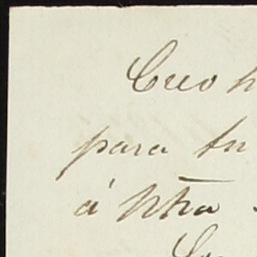 Creo h
para tu
á Ntra